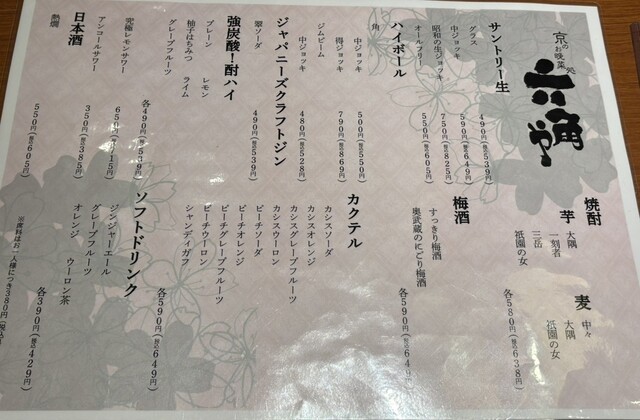 京のお晩菜処
六角や
サントリー生
グラス 490円(税込539円)
中ジョッキ 590円(税込649円)
昭和の生ジョッキ 750円(税込825円)
オールフリー 550円(税込605円)
ハイボール
角
中ジョッキ 500円(税込550円)
得ジョッキ 790円(税込869円)
ジムビーム
中ジョッキ 480円(税込528円)
ジャパニーズクラフトジン
翠ソーダ 490円(税込539円)
強炭酸!酎ハイ
プレーン レモン
柚子はちみつ ライム
グレープフルーツ
各490円(税込539円)
究極レモンサワー 650円(税込715円)
アンコールサワー 350円(税込385円)
日本酒
熱燗 550円(税込605円)
焼酎
芋
大隅
一刻者
三岳
祇園の女
麦
中々
大隅
祇園の女
各580円(税込638円)
梅酒
すっきり梅酒
奥武蔵のにごり梅酒
各590円(税込649円)
カクテル
カシスソーダ
カシスオレンジ
カシスグレープフルーツ
カシスウーロン
ピーチソーダ
ピーチオレンジ
ピーチグレープフルーツ
ピーチウーロン
シャンディガフ
各590円(税込649円)
ソフトドリンク
ジンジャーエール
グレープフルーツ
オレンジ ウーロン茶
各390円(税込429円)
※席料はお一人様につき380円(税込